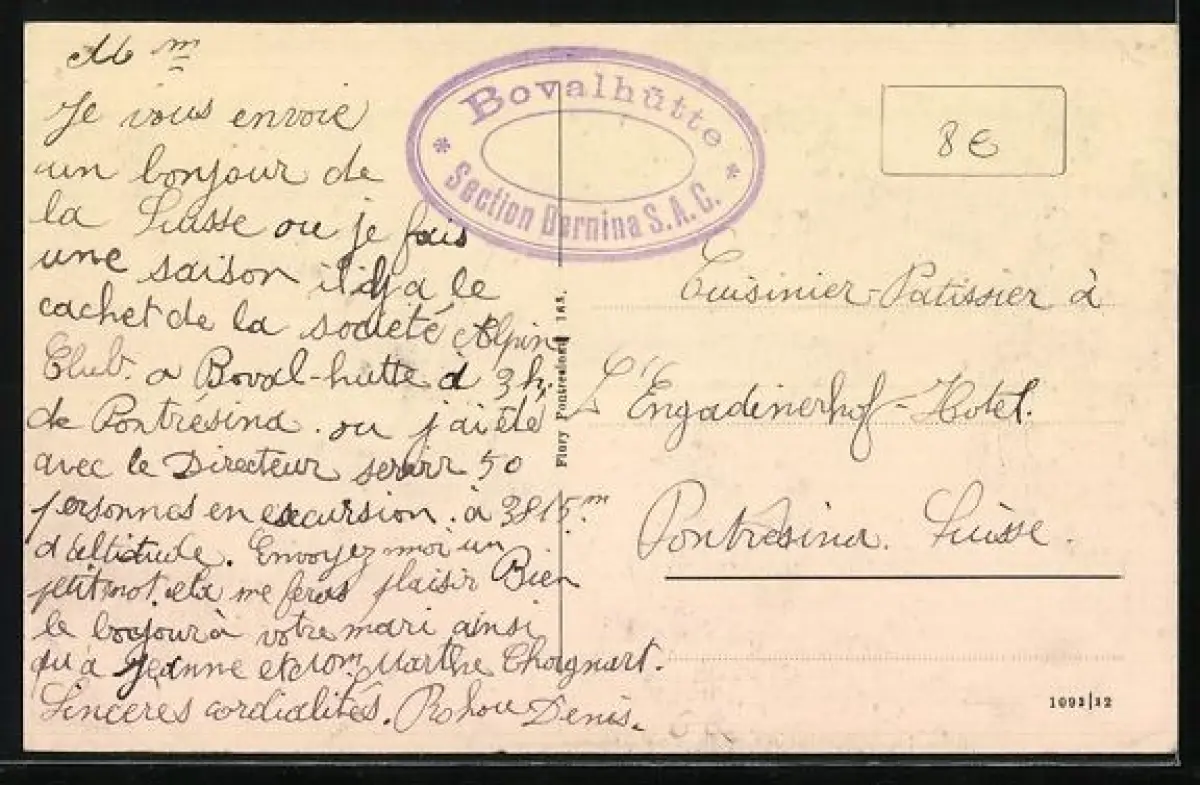 Mme
Je vous envoie
un bonjour de
la Suisse ou je fais
une saison il y a le
cachet de la société Alpin
Club. a Boval-hutte à 3h.
de Pontrésina. ou j'ai été
avec le Directeur servir 50
personnes en excursion. à 3815m
d'altitude. Envoyez moi un
petit mot. cela me feras plaisir Bien
le bonjour à votre mari ainsi
qu'a Jeanne et Marthe
Sincères cordialités. Denis.
* Bovalhütte *
Section Bernina S.A.C.
8 €
Flury Pontresina
Cuisinier-Patissier à
L'Engadinerhof-Hotel.
Pontrésina. Suisse.
1093/32